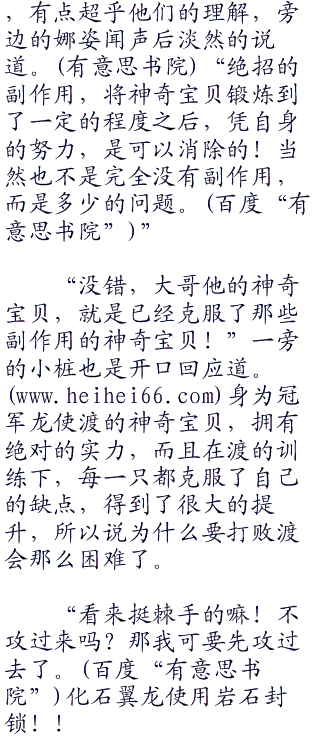 ，有点超乎他们的理解，旁
边的娜姿闻声后淡然的说
道。(有意思书院)“绝招的
副作用，将神奇宝贝锻炼到
了一定的程度之后，凭自身
的努力，是可以消除的！当
然也不是完全没有副作用，
而是多少的问题。(百度“有
意思书院”)”
“没错，大哥他的神奇
宝贝，就是已经克服了那些
副作用的神奇宝贝！”一旁
的小桩也是开口回应道。
(www.heihei66.com)身为冠
军龙使渡的神奇宝贝，拥有
绝对的实力，而且在渡的训
练下，每一只都克服了自己
的缺点，得到了很大的提
升，所以说为什么要打败渡
会那么困难了。
“看来挺棘手的嘛！不
攻过来吗？那我可要先攻过
去了。(百度“有意思书
院”)化石翼龙使用岩石封
锁！！